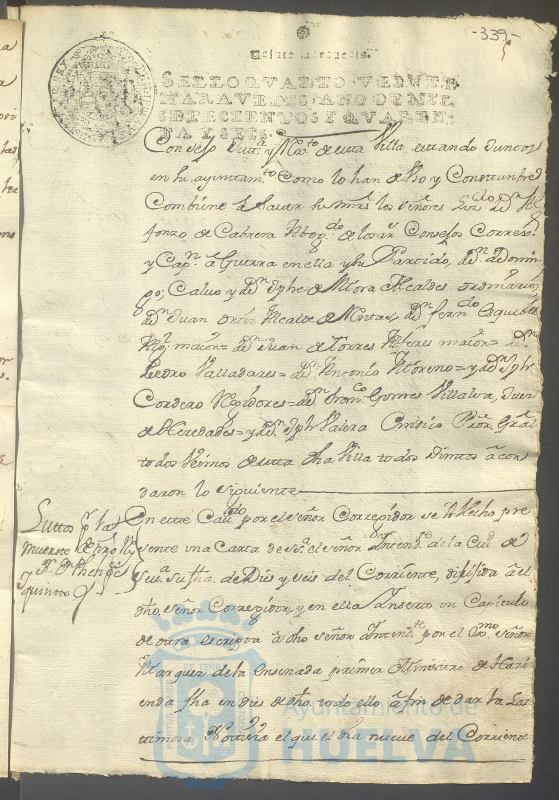 -339-
Veinte maravedis.
SELLO QVARTO, VEINTE
MARAVEDIS, AÑO DE MIL
SETECIENTOS Y QVAREN-
TA Y SEIS.
Consejo Just.ª y Rex.to de esta Villa estando Juntos
en su ayuntam.to como lo han de Vso y Constumbre
Combiene a Saver su mrs los Señores Liz.do Dn
fonzo de Cabrera Abog.do de los rs Consejos Correxr
y Capn a Guerra en ella y su Partido, Dn Domin
go, Calvo y Dn Jphe de Mora Alcaldes ordinarios
Dn Juan Ortiz Alcalde de Mestas, Dn fern.do Esquibel
Alg.l maior= Dn Juan de torres Alferes maior= Dn
Pedro Valladares= Dn Antonio Moreno= y Dn Jph
Cordero Rexidores= Dn fran.co Gomes Villalva, Juez
de Heredades= y Dn Jph Valera Sindico Pror Gral
todos Vezinos de esta dha Villa todos Juntos acor
daron lo siguiente
Luttos p.r la
muerte de nro Rey
Dn Phelipe
quinto
En este Cav.do por el señor Correxidor se a Hecho pre
sente una Carta de Sa el señor Intend.te de la Ciu.d de
Seu.a su fha de Dies y seis del Corriente, dirijida a el
dho, señor Correxidor, y en ella Inserto un Capitulo
de otra escripta a dho señor Intend.te por el Exmo señor
Marques de la ensenada primer Ministro de Hazi
enda fha en dies de dho, todo ello a fin de dar la Las
timosa Noticia el que el dia nueve del Corriente
Ayuntamiento de
HUELVA